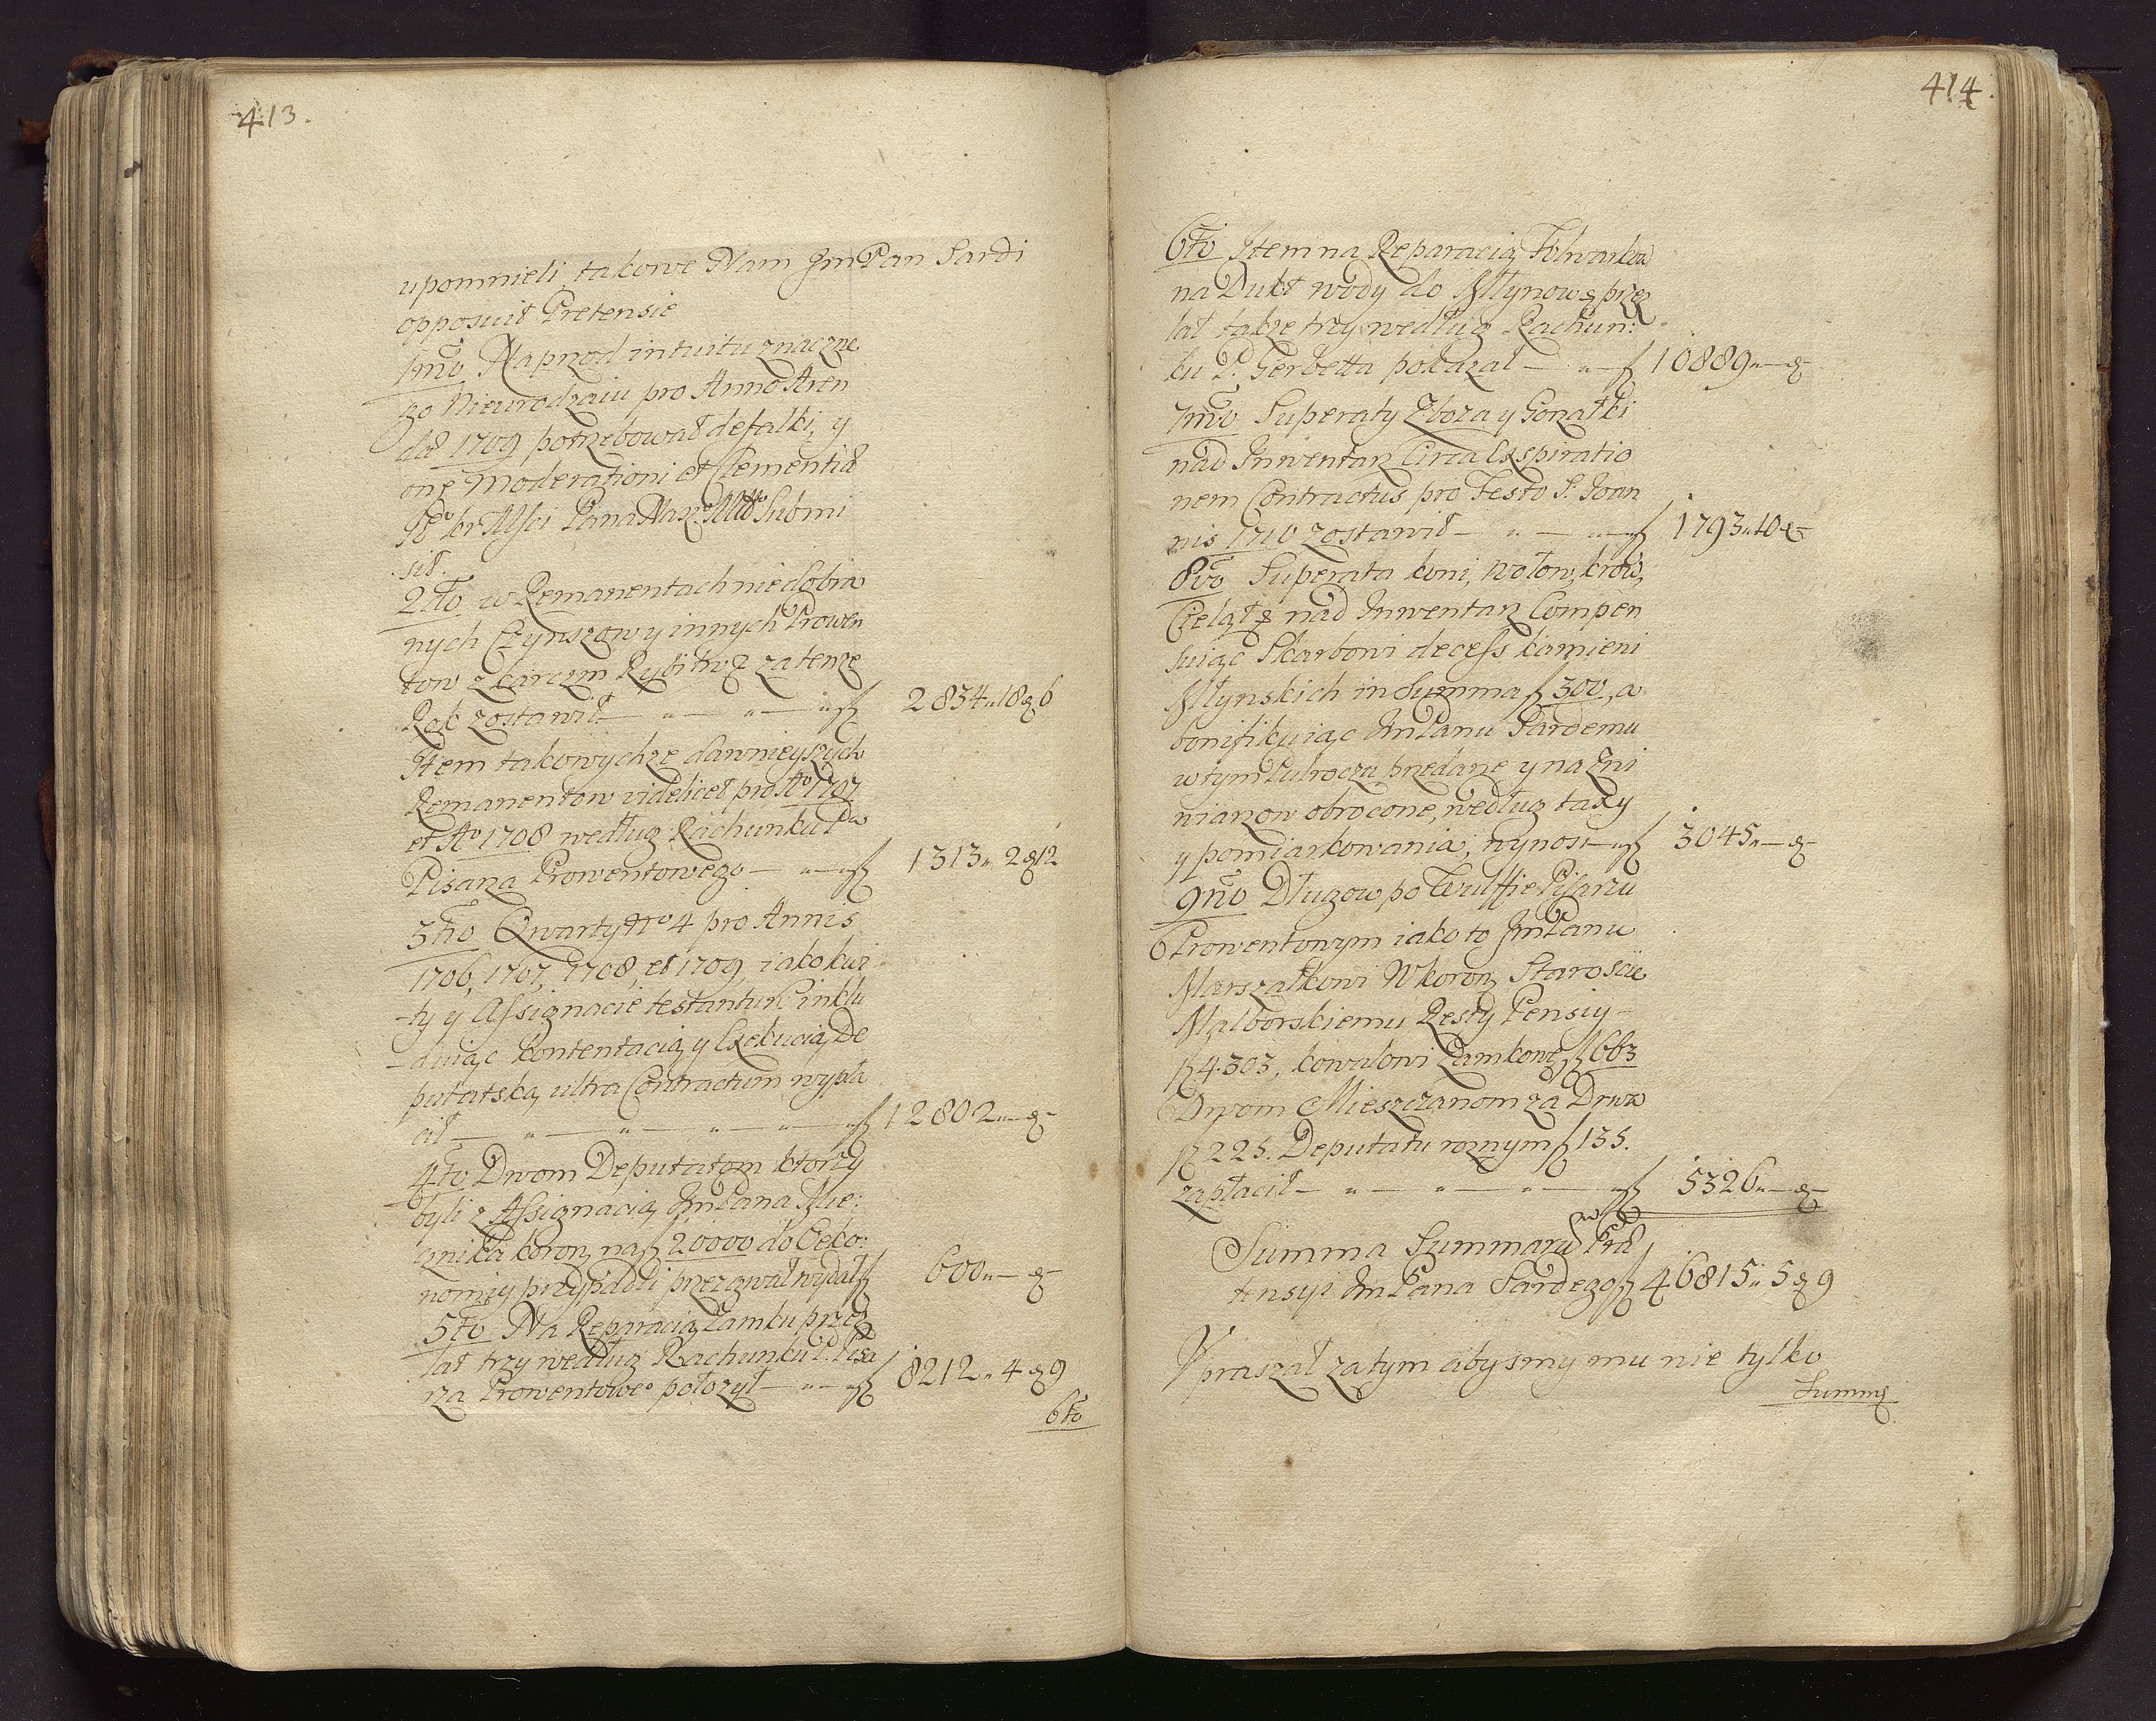 413.
upomnieli, takowe Nam JmPan Sardi
opposuit Pretensie
1mo Naprzod intuitu znaczne
go Nieurodzaiu pro Anno Aren
dæ 1709 potrzebował defalki, y
onę Moderationi et Clementiæ
Pana Submi
sit.
2do w Remanentach niedobra
nych Czynszow y innych Prowen
tow z karczm Rybitw za tenze
Rok zostawił — " — " — " f 2834 " 18 g 6
Item takowychze dawnieyszych
Remanentow videlicet pro Ao 1707
et Ao 1708 według Rachunku Pa
Pisarza Prowentowego — " — " f 1313 " 2 g 12
3tio Qwarty No 4 pro Annis
1706, 1707, 1708, et 1709, iako kwi
ty y Assignacie testantur inklu
duiąc kontentacią y Exekucią De
putatską ultra Contractum wypła
cił — " — " — " — " — " f 12802 " — g —
4to Dwom Deputatom ktorzy
byli z Assignacią JmPana Mie:
cznika koron, na f 20000 do Oeko:
nomiy przypadli przez gwał wydał f 600 " — g —
5to Na Reparacią Zamku przez
lat trzy według Rachunku P. Pisa
rza Prowentoweo położył — " — " f 8212 " 4 g 9
6to
414.
6to Item na Reparacią Folwarkow
na Dukt wody do Młynow przez
lat także trzy według Rachun:
ku P. Gerbetta pokazał — " — f 10889 " — g
7mo Superaty Zboza y Gorzałki
nad Inwentarz Circa Exspiratio
nem Contractus pro Festo S. Joan
nis 1710 zostawił — " — " — " f 1793 " 10 g —
8vo Superata koni, wołow, krow,
Cieląt nad Inwentarz Compen
suiąc Skarbowi decess kamieni
Młynskich in Summa f 300, a
bonifikuiąc JmPanu Sardemu
w tym Pułroczu przedane y na Zni
wiarzow obrocone, według taxy
y pomiarkowania, wynosi — " f 3045 " — g —
9no Długow po Wulffie Pisarzu
Prowentowym iako to JmPanu
Marszałkowi Wkoron, Staroscie
Malborskiemu Resty Pensiy —
f 4303, kowalowi Zamkow f 663
Dwom Mieszczanom za Drwa
f 225. Deputatu roznym f 135.
zapłacił — " — " — " — " f 5326 " — g —
Summa Summarum Præ
tensyi JmPana Sardego f 46815 " 5 g 9
Upraszał zatym abysmy mu nie tylko
Summę